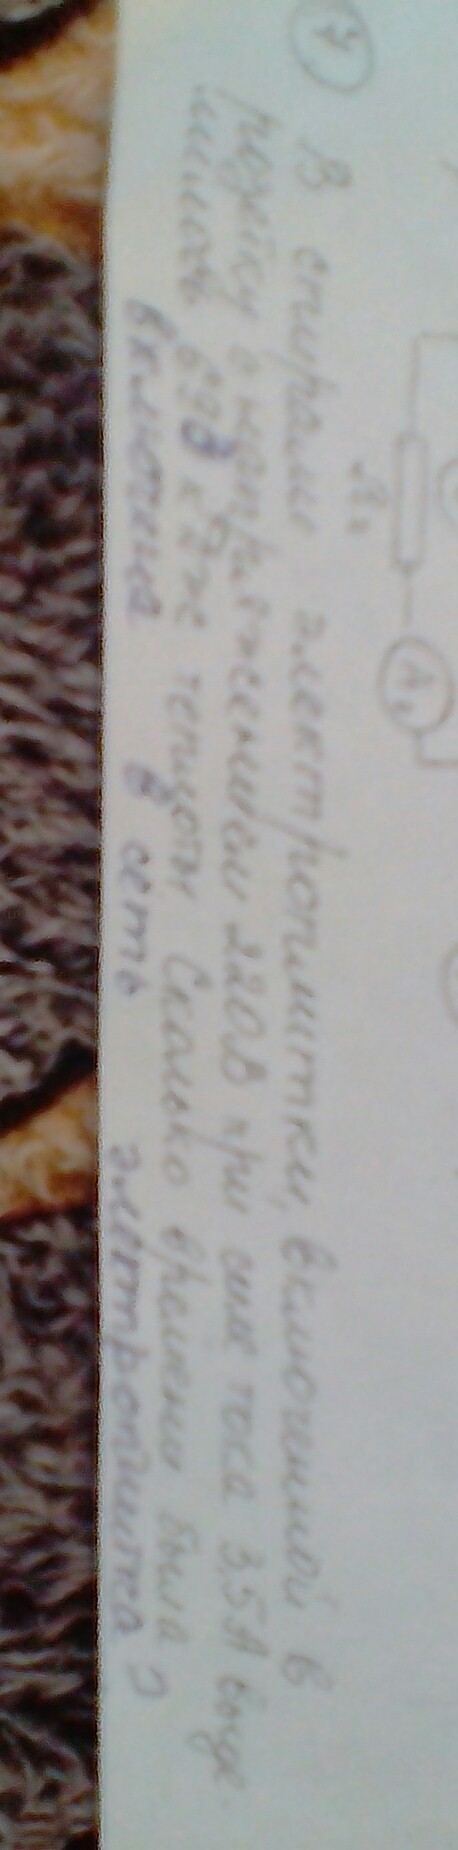 7
В спирали электроплитки, включенной в
розетку с напряжением 220В при силе тока 3,5А выде-
лилось 693 кДж теплоты Сколько времени была
включена в сеть электроплитка ?
A₂